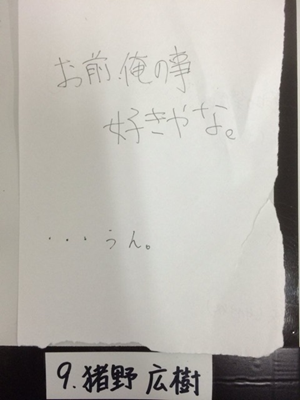 お前、俺の事
好きやな。
・・・うん。
9.猪野広樹